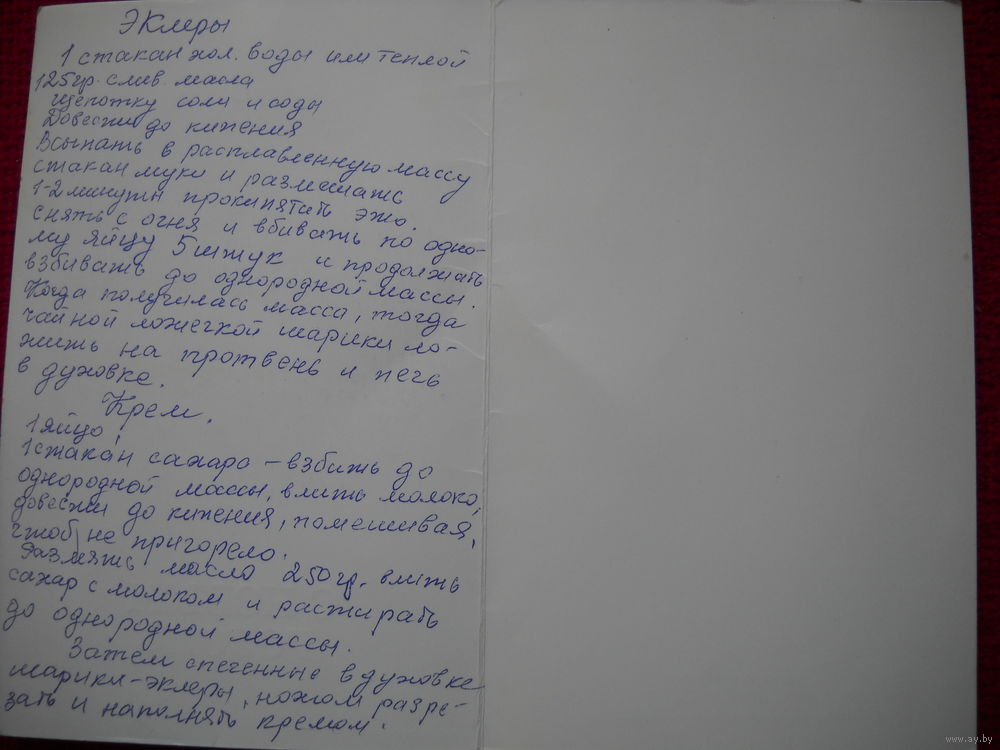 Эклеры
1 стакан хол. воды или теплой
125гр. слив. масла
щепотку соли и соды
Довести до кипения
Всыпать в расплавленную массу
стакан муки и размешать
1-2 минуты прокипятить это.
снять с огня и вбивать по одно-
му яйцу 5 штук и продолжать
взбивать до однородной массы.
Когда получилась масса, тогда
чайной ложечкой шарики ло-
жить на протвень и печь
в духовке.
Крем.
1 яйцо,
1 стакан сахара – взбить до
однородной массы, влить молоко,
довести до кипения, помешивая,
чтоб не пригорело.
Размять масло 250гр. влить
сахар с молоком и растирать
до однородной массы.
Затем спеченные в духовке
шарики-эклеры, ножом разре-
зать и наполнять кремом.
www.ay.by